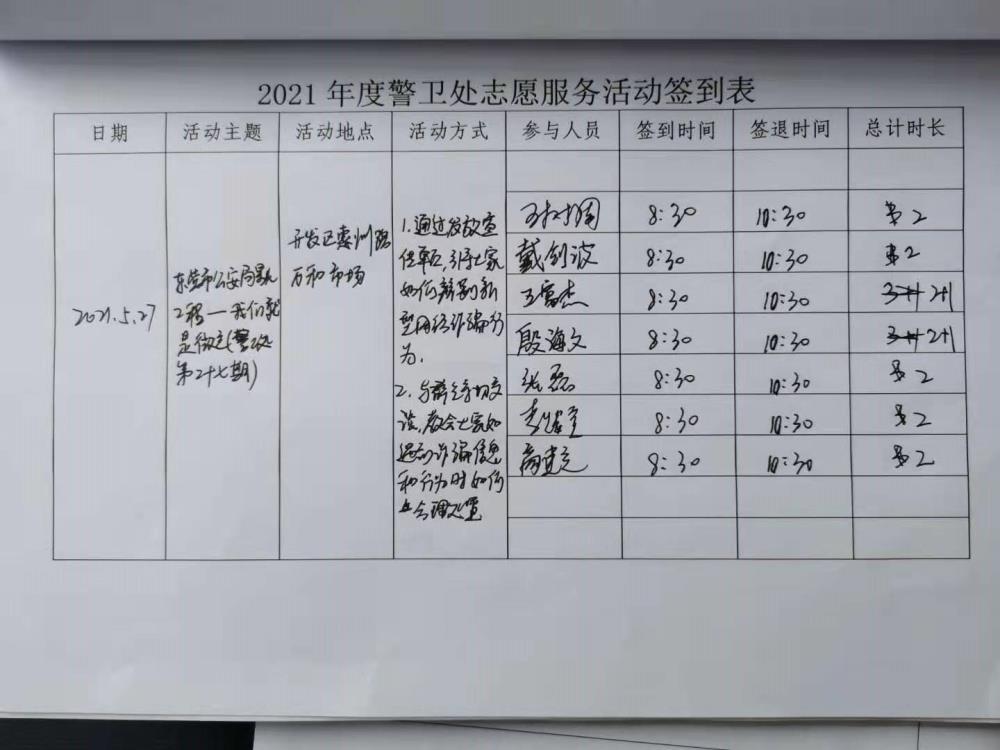 2021年度警卫处志愿服务活动签到表
日期 活动主题 活动地点 活动方式 参与人员 签到时间 签退时间 总计时长
2021.5.27
东营市公安局
我们就
是
第二十七期)
开发区 州路
万和市场
1.通过发放宣
传单页,引导大家
如何辨别新
型网络诈骗行
为.
2.与群众亲切交
谈,教会大家如
遇到诈骗信息
和行为时如何
合理处置
8:30 10:30 2
戴剑波 8:30 10:30 2
王富杰 8:30 10:30 2+1
殷海文 8:30 10:30 2+1
张磊 8:30 10:30 2
8:30 10:30 2
8:30 10:30 2